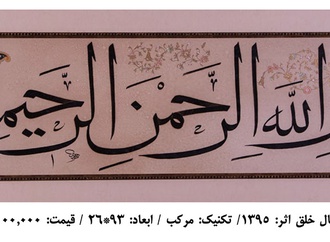 الله الرحمن الرحیم
خلق اثر: ۱۳۹۵/ تکنیک: مرکب / ابعاد: ۹۳*۲۶ / قیمت: